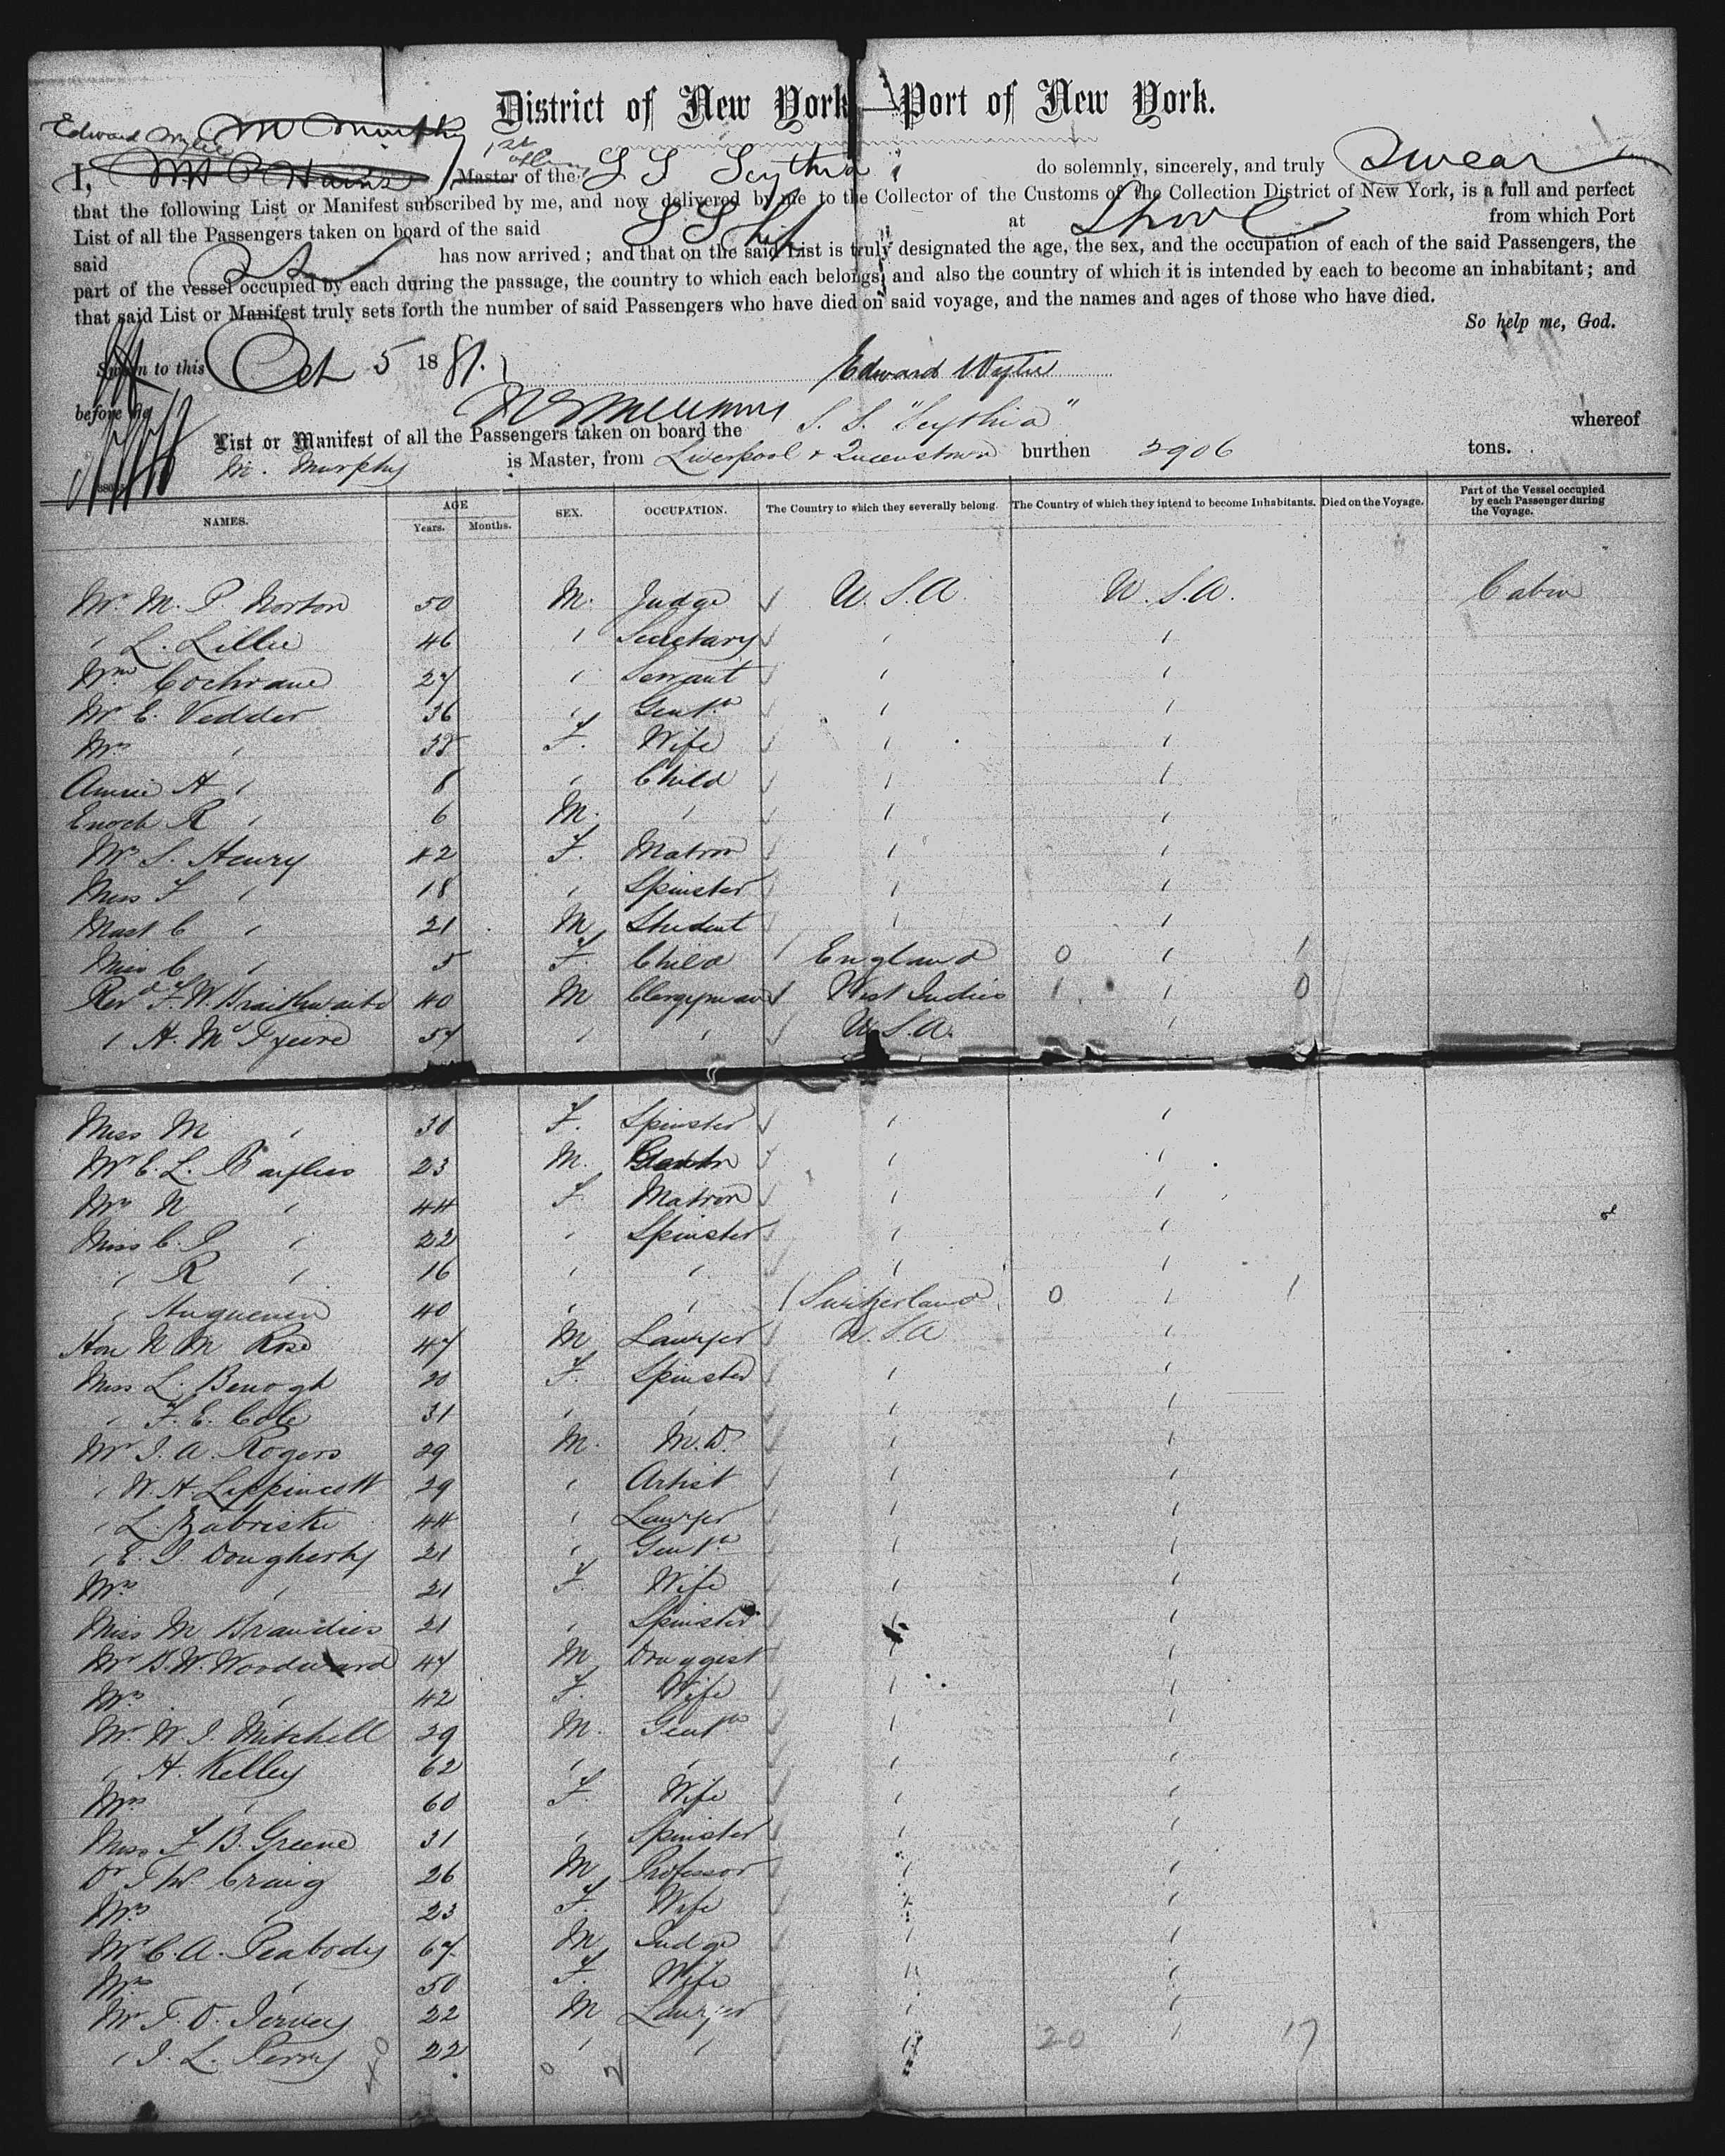 District of New York—Port of New York.
Edward Wylie M Murphy
1st officer
I, Master of the S S Scythia do solemnly, sincerely, and truly Swear
that the following List or Manifest subscribed by me, and now delivered by me to the Collector of the Customs of the Collection District of New York, is a full and perfect
List of all the Passengers taken on board of the said at from which Port
said has now arrived; and that on the said List is truly designated the age, the sex, and the occupation of each of the said Passengers, the
part of the vessel occupied by each during the passage, the country to which each belongs, and also the country of which it is intended by each to become an inhabitant; and
that said List or Manifest truly sets forth the number of said Passengers who have died on said voyage, and the names and ages of those who have died.
So help me, God.
Sworn to this Oct 5 1881. Edward Wylie
before me
List or Manifest of all the Passengers taken on board the S. S. "Scythia" whereof
M. Murphy is Master, from Liverpool & Queenstown burthen 2906 tons.
NAMES. AGE Years. Months. SEX. OCCUPATION. The Country to which they severally belong. The Country of which they intend to become Inhabitants. Died on the Voyage. Part of the Vessel occupied by each Passenger during the Voyage.
Mr. M. P. Norton 50 M. Judge U.S.A. U.S.A. Cabin
" L. Lillie 46 " Secretary " "
Wm Cochrane 27 " Servant " "
Mr E. Vedder 36 " Gentn " "
Mrs " F. Wife " "
Annie A " 8 " Child " "
Enoch R " 6 M. " " "
Mrs S. Henry 42 F. Matron " "
Miss F " 18 " Spinster " "
Mast C " 21 M Student " "
Miss C " 5 F. Child England 0 " 1
Revd F. W. Braithwaite 40 M Clergyman West Indies 1 " 0
" H. McTyeire 57 " " U.S.A. "
Miss M " 30 F. Spinster " "
Mr E. L. Baylies 23 M. " "
Mrs N " 44 F. Matron " "
Miss C. P " 22 " Spinster " "
" R " 16 " " " "
" Huguenin 40 " " Switzerland 0 " 1
Hon U M Rose 47 M Lawyer U.S.A "
Miss L. 30 F. Spinster " "
" F. E. Cole 31 " " " "
Mr J. A. Rogers 29 M. M.D. " "
" W. H. Lippincott 29 " Artist " "
" L. Zabriskie 44 " Lawyer " "
" E. J. Dougherty 21 " Gentn " "
Mrs " 21 F. Wife " "
Miss M Brandies 21 " Spinster " "
Mr B. W. Woodward 47 M Druggist " "
Mrs " 42 F. Wife " "
Mr W. J. Mitchell 29 M. Gentn " "
" A. Kelley 62 " " " "
Mrs " 60 F. Wife " "
Miss F B. Greene 31 " Spinster " "
Dr J W Craig 26 M Professor " "
Mrs " 23 F. Wife " "
Mr C. A. Peabody 67 M Judge " "
Mrs " 50 F. Wife " "
Mr T. D. Jervey 22 M Lawyer " "
" J. L. Perry 22 " " " 20 " 17